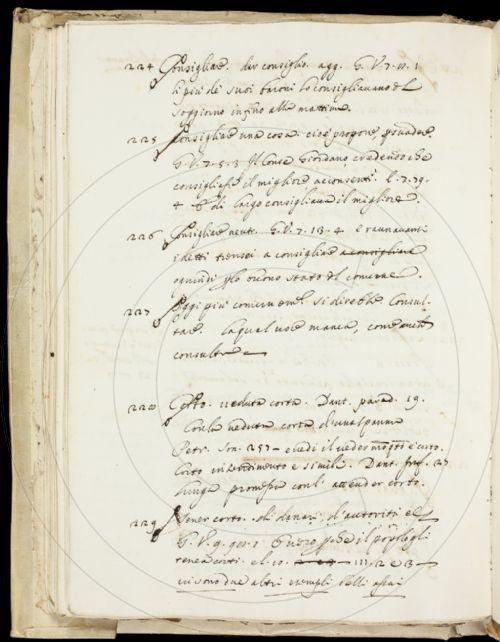 224 Consigliare. dar consiglio. agg. G. V. 7. 11. 1
li più de' suoi baroni lo consigliavano del
soggiorno infino alla mattina.
225 Consigliare una cosa cioè proporre
G. V. 7. 5. 3 Il Conte Giordano, credendo che
consigliasse il migliore acconsentì. l. 7. 79.
4 di largo consigliava il migliore.
226 Consigliare neut. G. V. 7. 13. 4 e raunavansi
i detti trensei a consigliare
ogni dì il buono stato del comune.
227 Oggi più comunemente si direbbe Consul-
tare. la qual voce manca, come
consulta
228 Corto. veduta corta. Dant. parad. 19.
Con la veduta corta d'una spanna
Petr. son. 257 - e vedi il veder nostro è corto.
Corto intendimento e simile. Dant. Inf. 27
Lunga promessa con l'attender corto.
229 Tener corto. di danari, d'autorità e
G. V. 9. 901. 1 il popolo gli
tenea corti. el. 10. 111. 2 e 13 -
vi sono due altri esempli belli assai